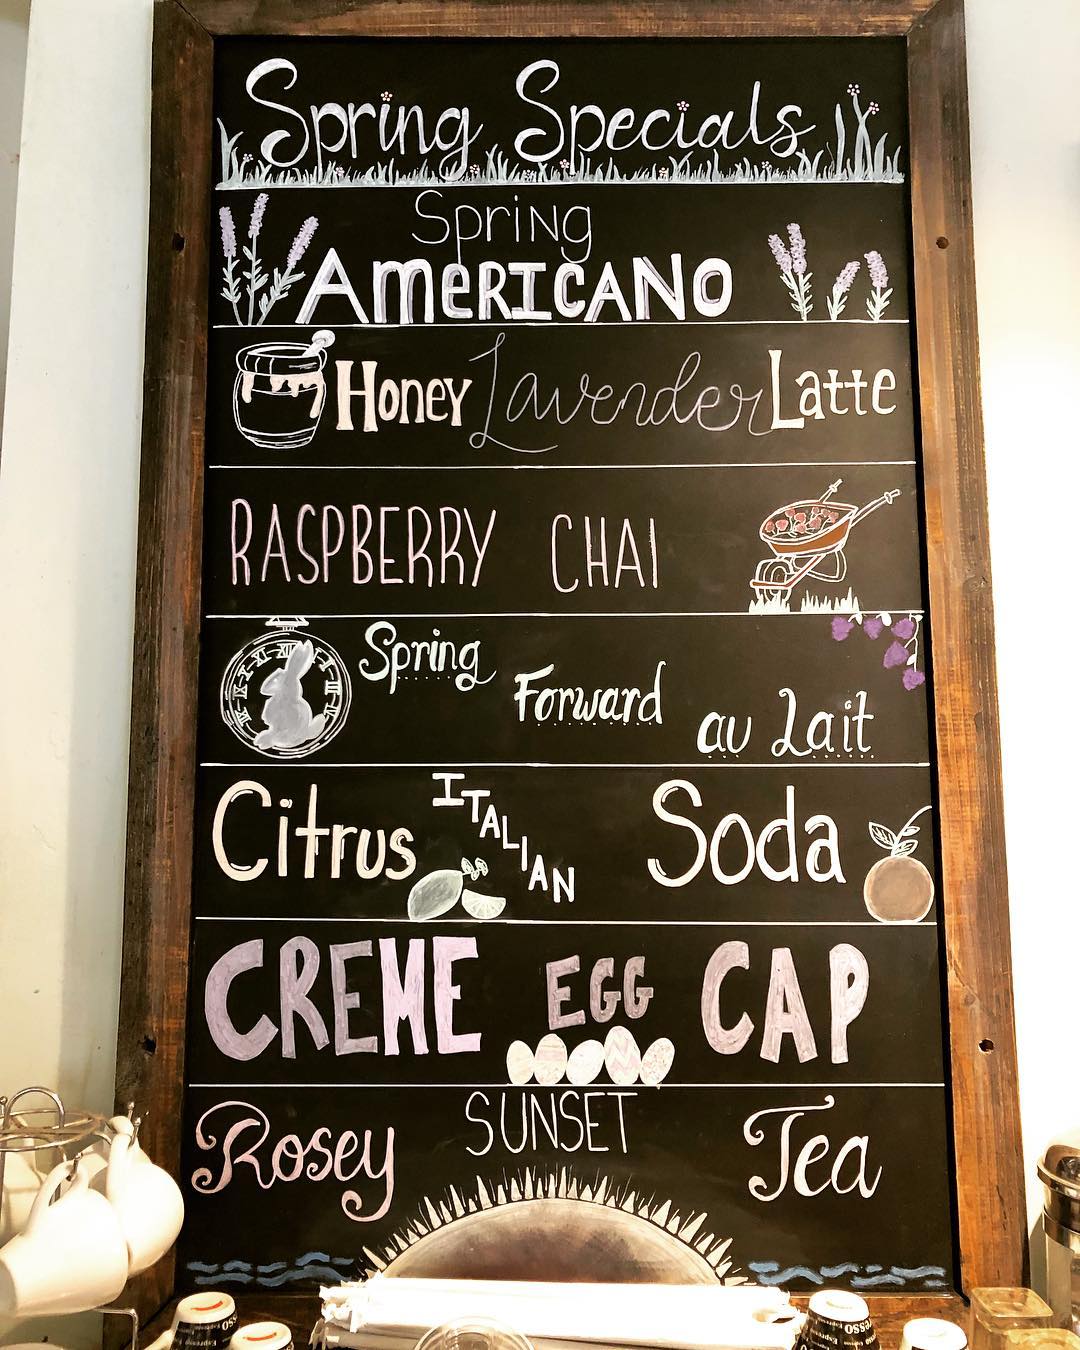 Spring Specials
Spring
AMERICANO
Honey Lavender Latte
RASPBERRY CHAI
Spring Forward au Lait
Citrus ITALIAN Soda
CREME EGG CAP
Rosey SUNSET Tea